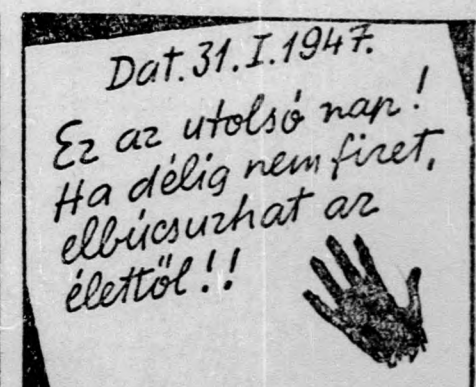 Dat. 31. I. 1947.
Ez az utolsó nap!
Ha délig nem fizet,
elbúcsuzhat az
élettől!!